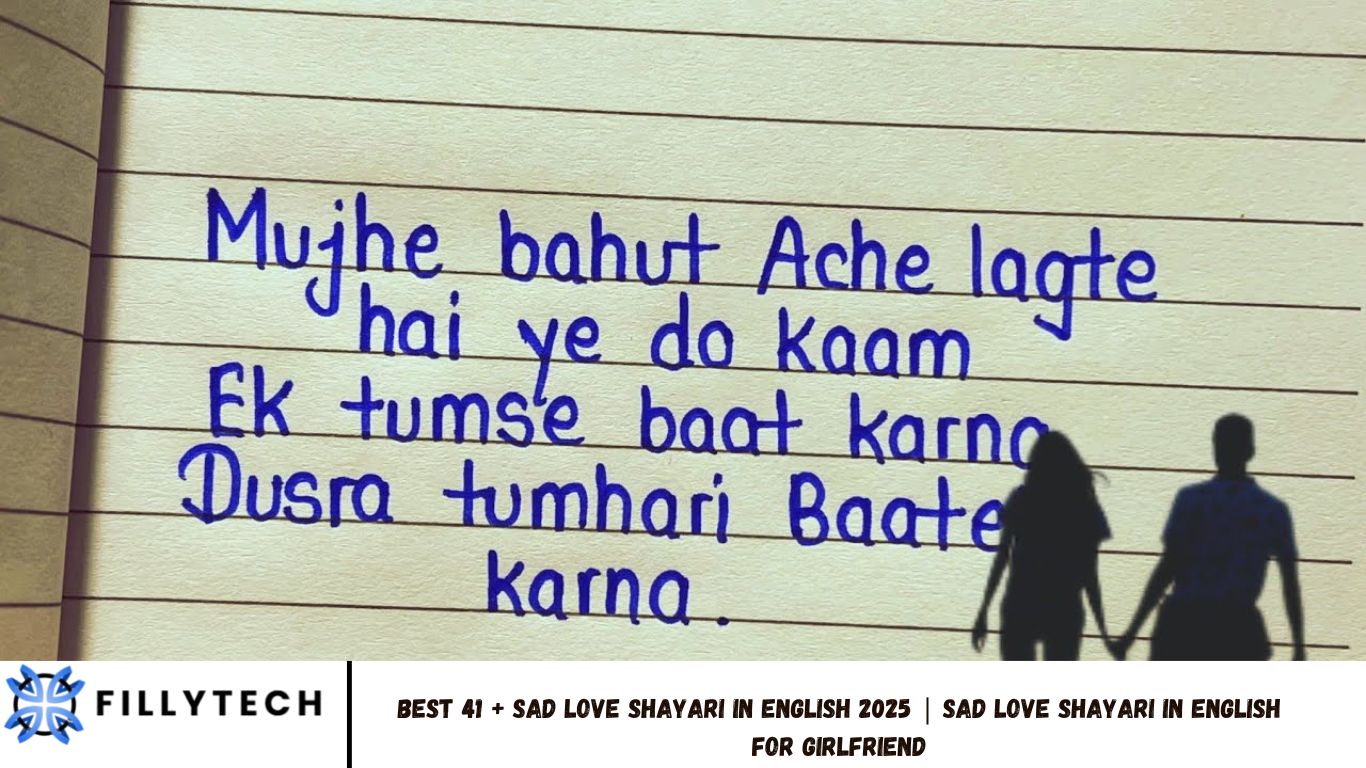 Mujhe bahut Ache lagte
hai ye do kaam
Ek tumse baat karna
Dusra tumhari Baate
karna.
FILLYTECH
BEST 41 + SAD LOVE SHAYARI IN ENGLISH 2025 | SAD LOVE SHAYARI IN ENGLISH
FOR GIRLFRIEND